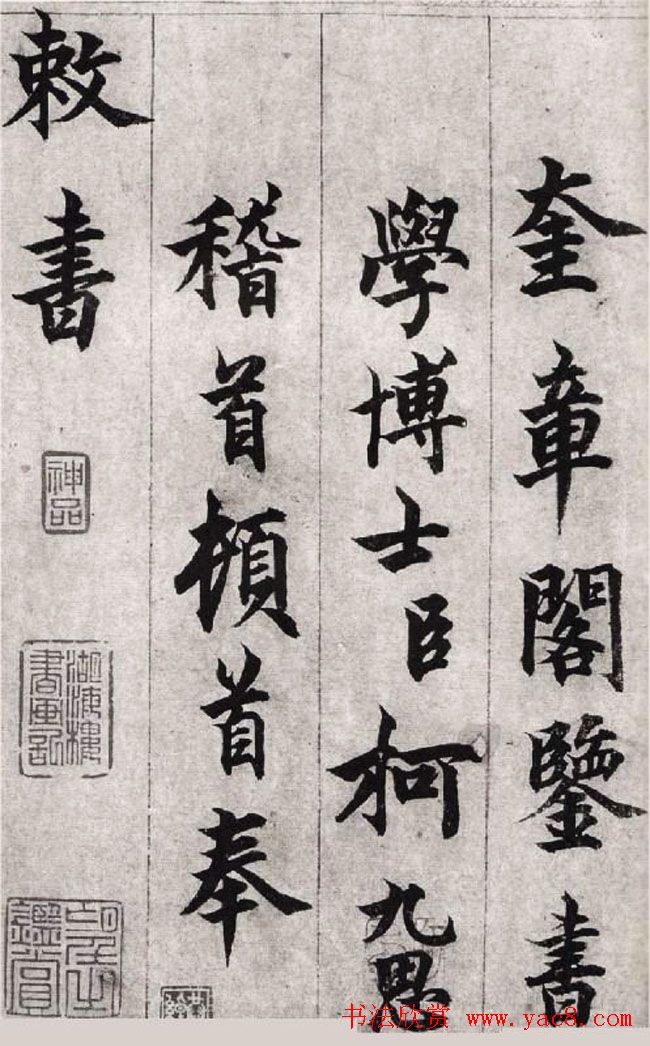 奎章閣鑒書
學博士臣柯九思
稽首頓首奉
敕書
神品
湖海樓書畫記
書法欣赏 www.yac8.com